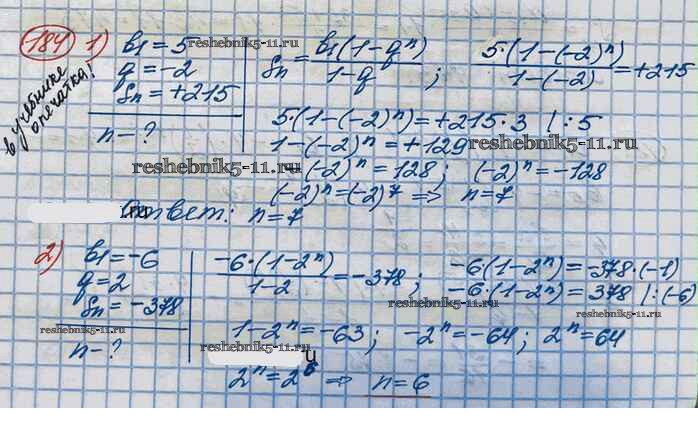 184 1) b1 = 5
q = -2
Sn = +215
n - ?
в учебнике опечатка!
Sn = b1(1-q^n) / 1-q ; 5·(1-(-2)^n) / 1-(-2) = +215
5·(1-(-2)^n) = +215·3 |:5
1-(-2)^n = +129
-(-2)^n = 128; (-2)^n = -128
(-2)^n = (-2)^7 ⇒ n=7
Ответ: n=7
2) b1 = -6
q = 2
Sn = -378
n - ?
-6·(1-2^n) / 1-2 = -378; -6(1-2^n) = -378·(-1)
-6·(1-2^n) = 378 |:(-6)
1-2^n = -63; -2^n = -64; 2^n = 64
2^n = 2^6 ⇒ n=6
reshebnik5-11.ru
reshebnik5-11.ru
reshebnik5-11.ru
reshebnik5-11.ru
reshebnik5-11.ru
reshebnik5-11.ru